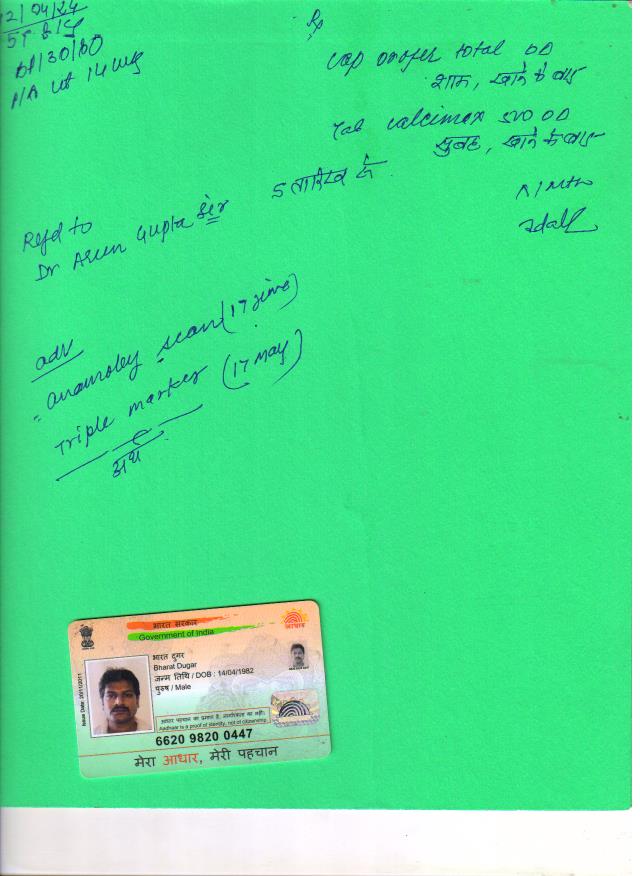 12/04/24
57 kg
BP/30/80
P/A ut 14 wk
Rx
cap orofer total OD
शाम, खाने के बाद
Tab calcimax 500 OD
सुबह, खाने के बाद
5 तारिख से
Refd to
Dr Arun Gupta Sir
adv
anamoley scan (17 June)
Triple marker (17 May)
भारत सरकार
Government of India
आधार
भारत दुगर
Bharat Dugar
जन्म तिथि / DOB : 14/04/1982
पुरुष / Male
Issue Date: 20/11/2011
आधार पहचान का प्रमाण है, नागरिकता का नहीं।
Aadhaar is a proof of identity, not of citizenship.
6620 9820 0447
मेरा आधार, मेरी पहचान